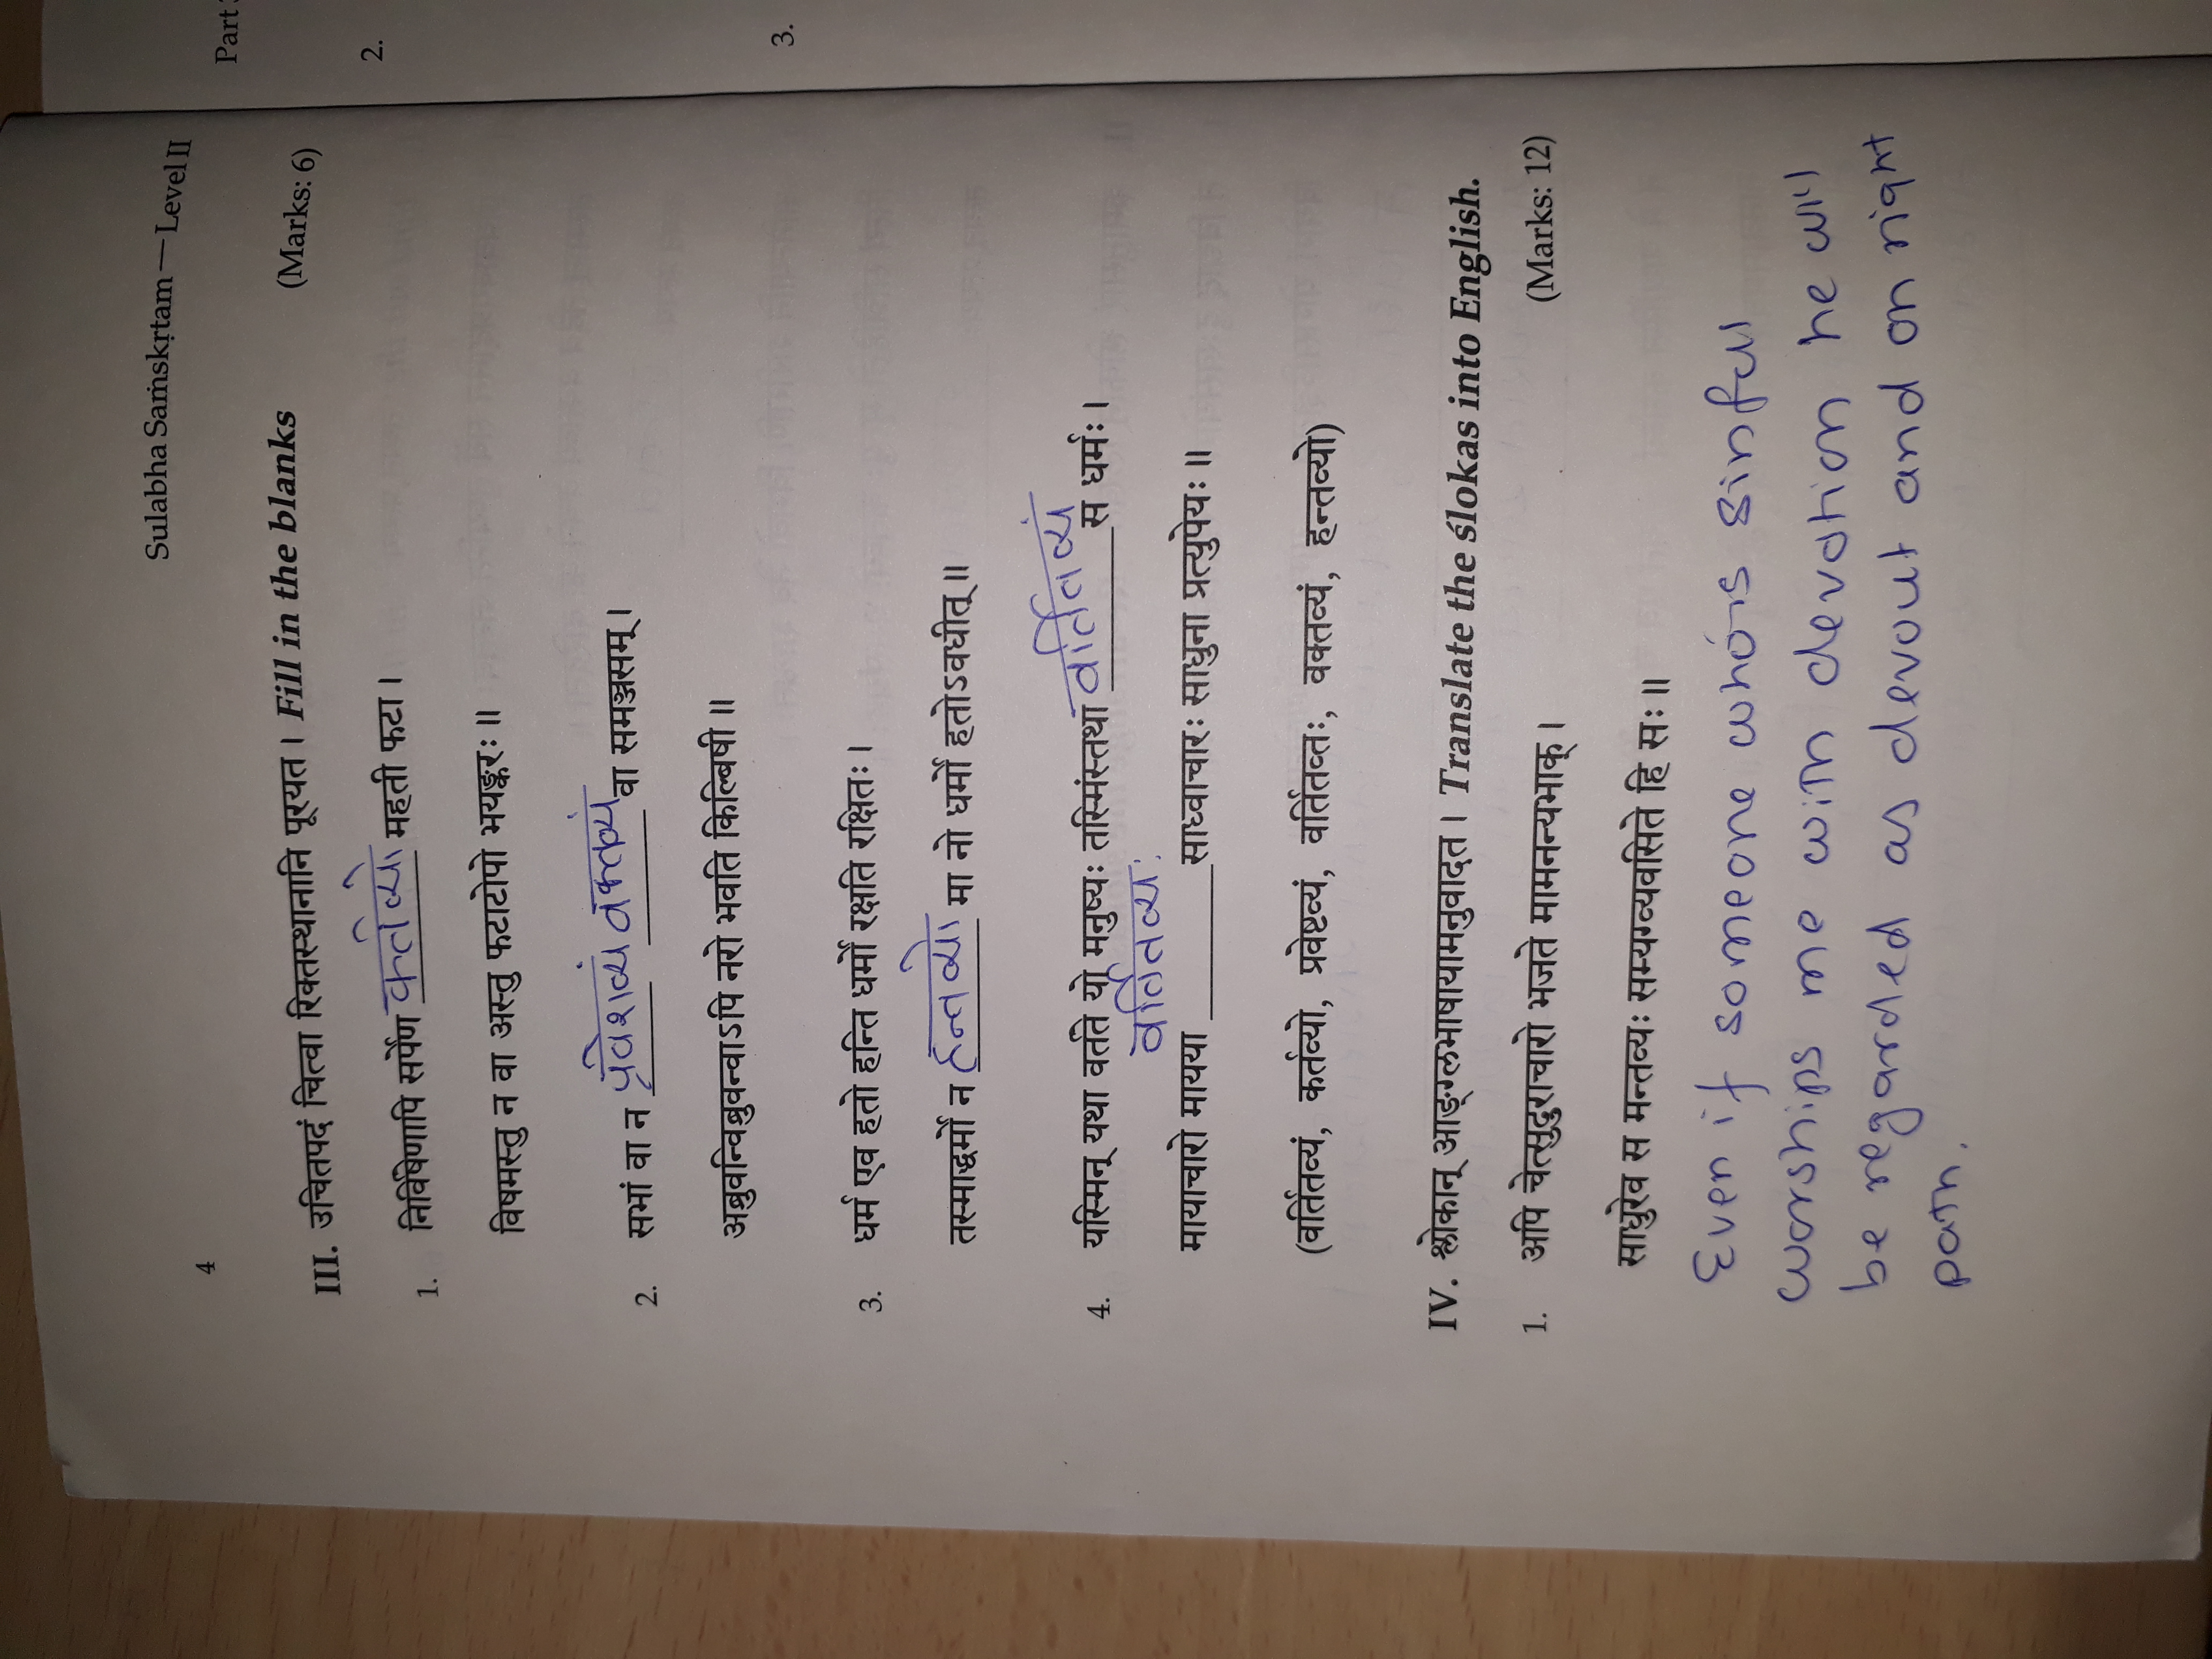 4
Sulabha Saṁskṛtam — Level II
III. उचितपदं चित्वा रिक्तस्थानानि पूरयत । Fill in the blanks (Marks: 6)
1. निर्विषेणापि सर्पेण कर्तव्यो महती फटा ।
विषमस्तु न वा अस्तु फटाटोपो भयङ्करः ॥
2. सभां वा न प्रवेशव्यं वक्तव्यं वा समञ्जसम् ।
अब्रुवन्विब्रुवन्वाऽपि नरो भवति किल्बिषी ॥
3. धर्म एव हतो हन्ति धर्मो रक्षति रक्षितः ।
तस्माद्धर्मो न हन्तव्यो मा नो धर्मो हतोऽवधीत् ॥
4. यस्मिन् यथा वर्तते यो मनुष्यः तस्मिंस्तथा वर्तितव्यं स धर्मः ।
मायाचारो मायया वर्तितव्यः साध्वाचारः साधुना प्रत्युपेयः ॥
(वर्तितव्यं, कर्तव्यो, प्रवेष्टव्यं, वर्तितव्तः, वक्तव्यं, हन्तव्यो)
IV. श्लोकान् आङ्ग्लभाषायामनुवादत । Translate the ślokas into English.
(Marks: 12)
1. अपि चेत्सुदुराचारो भजते मामनन्यभाक् ।
साधुरेव स मन्तव्यः सम्यग्व्यवसितो हि सः ॥
Even if someone who is sinful
worships me with devotion he will
be regarded as devout and on right
path.
Part
2.
3.